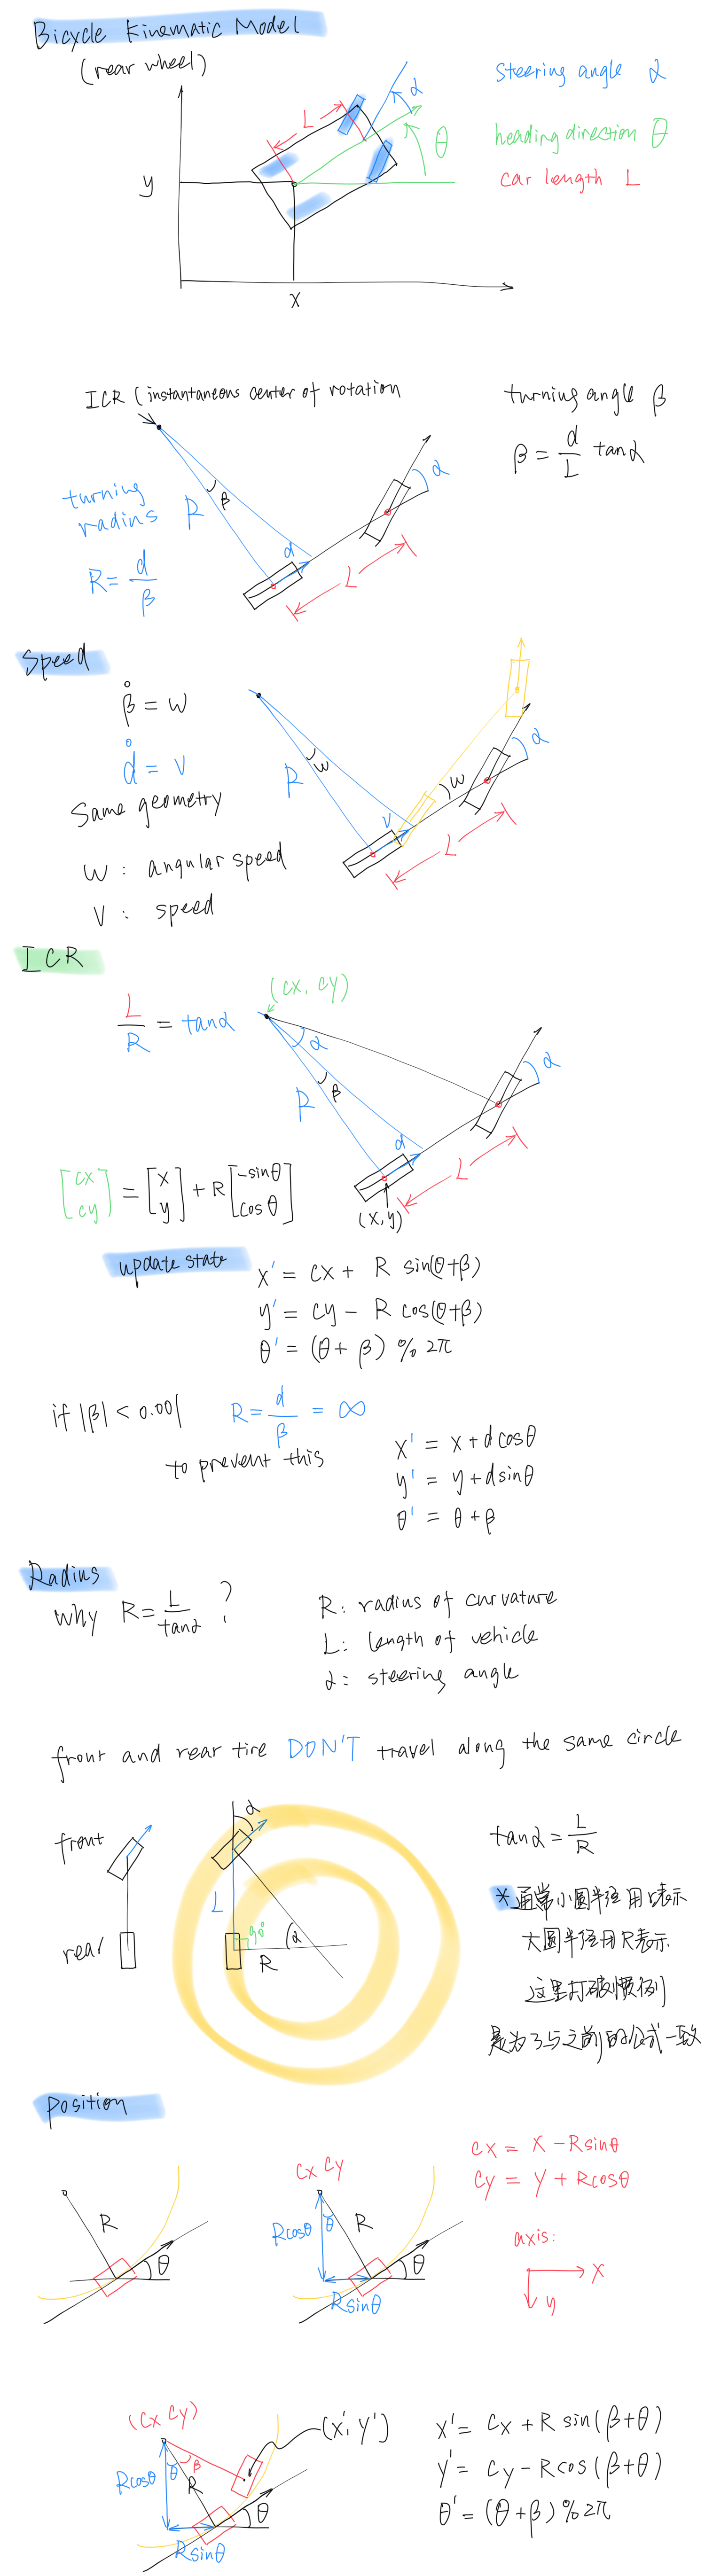 Bicycle Kinematic Model
(rear wheel)
steering angle α
heading direction θ
car length L
L
α
θ
y
x
ICR (instantaneous center of rotation
turning angle β
β = d/L tanα
turning radius R
R = d/β
β
d
L
α
Speed
β̊ = w
d̊ = v
Same geometry
w : angular speed
v : speed
R
w
v
w
L
α
ICR
(cx, cy)
L/R = tanα
α
β
R
d
L
α
(x, y)
[cx cy] = [x y] + R [-sinθ cosθ]
update state
x' = cx + R sin(θ+β)
y' = cy - R cos(θ+β)
θ' = (θ + β) % 2π
if |β| < 0.001 R = d/β = ∞
to prevent this
x' = x + d cosθ
y' = y + d sinθ
θ' = θ + β
Radius
why R = L/tanα ?
R: radius of curvature
L: length of vehicle
α: steering angle
front and rear tire DON'T travel along the same circle
front
rear
α
L
90°
R
α
tanα = L/R
* 通常小圆半径用r表示
大圆半径用R表示
这里打破惯例
是为了与之前的公式一致
Position
R
θ
cx cy
Rcosθ
θ
R
θ
Rsinθ
cx = x - Rsinθ
cy = y + Rcosθ
axis:
x
y
(cx cy)
(x', y')
Rcosθ
θ
β
R
θ
Rsinθ
x' = cx + R sin(β+θ)
y' = cy - R cos(β+θ)
θ' = (θ+β) % 2π